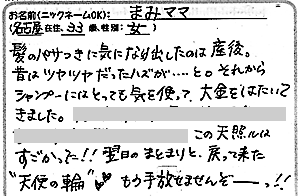 お名前(ニックネームOK): まみママ
(名古屋在住、33歳、性別: 女)
髪のパサつきに気になり出したのは産後。
昔はツヤツヤだったハズが‥‥と。それから
シャンプーにはとっても気を使って、大金をはたいて
きました。
この天照ルは
すごかった!! 翌日のまとまりと、戻って来た
"天使の輪"♥♥ もう手放せませんぞーっ!!